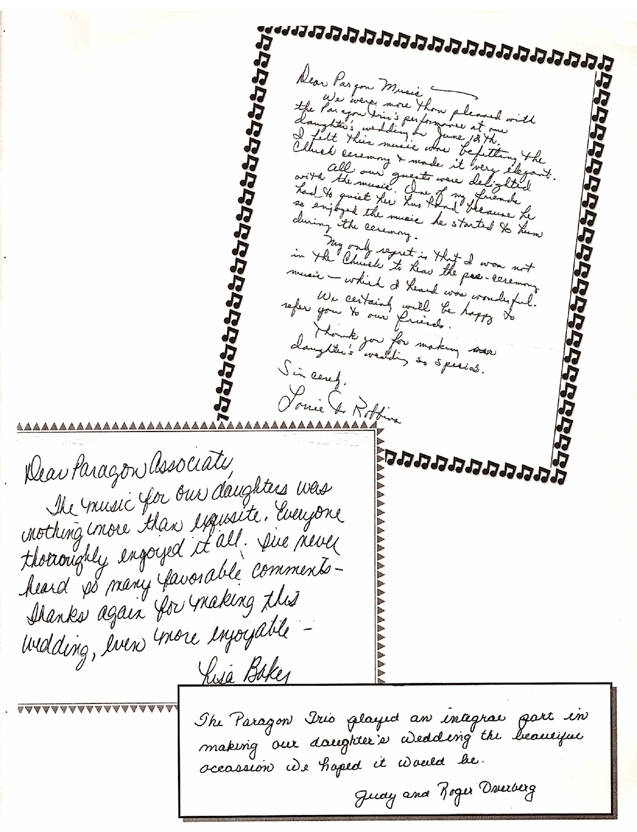 Dear Paragon Music —
We were more than pleased with
the Paragon Trio's performance at our
daughter's wedding on June 12th.
I felt this music was befitting the
Church ceremony & made it very elegant.
All our guests were delighted
with the music. One of my friends
had to quiet her husband because he
so enjoyed the music he started to hum
during the ceremony.
My only regret is that I was not
in the Church to hear the pre-ceremony
music — which I heard was wonderful.
We certainly will be happy to
refer you to our friends.
Thank you for making
daughter's wedding so special.
Sincerely,
Robbins
Dear Paragon Associates,
The music for our daughters was
nothing more than exquisite. Everyone
thoroughly enjoyed it all. I've never
heard so many favorable comments –
Thanks again for making this
wedding, even more enjoyable –
Lisa Baker
The Paragon Trio played an integral part in
making our daughter's wedding the beautiful
occassion we hoped it would be.
Judy and Roger Overberg